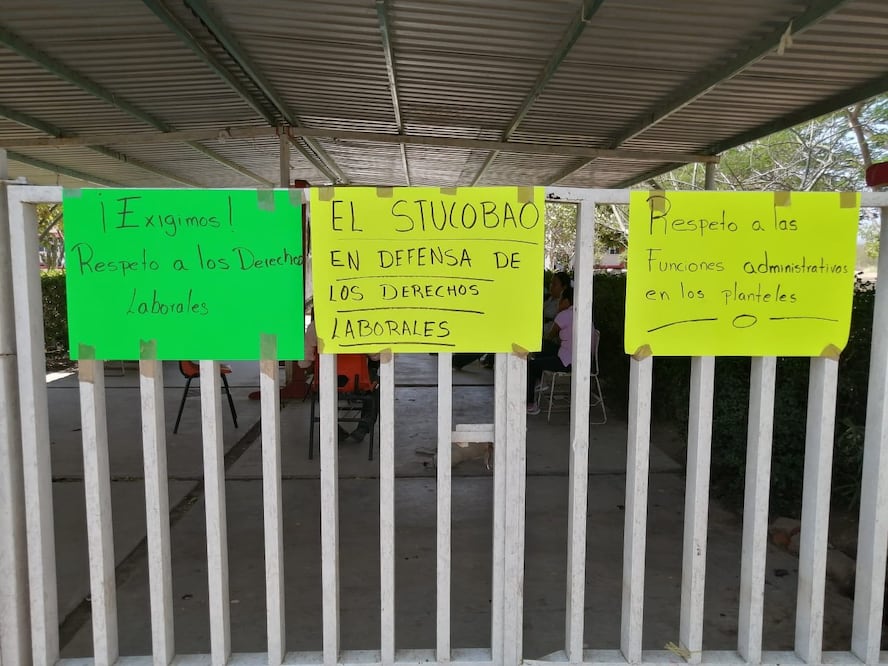 ¡Exigimos!
Respeto a los Derechos
Laborales
EL STUCOBAO
EN DEFENSA DE
LOS DERECHOS
LABORALES
Respeto a las
Funciones administrativas
en los planteles